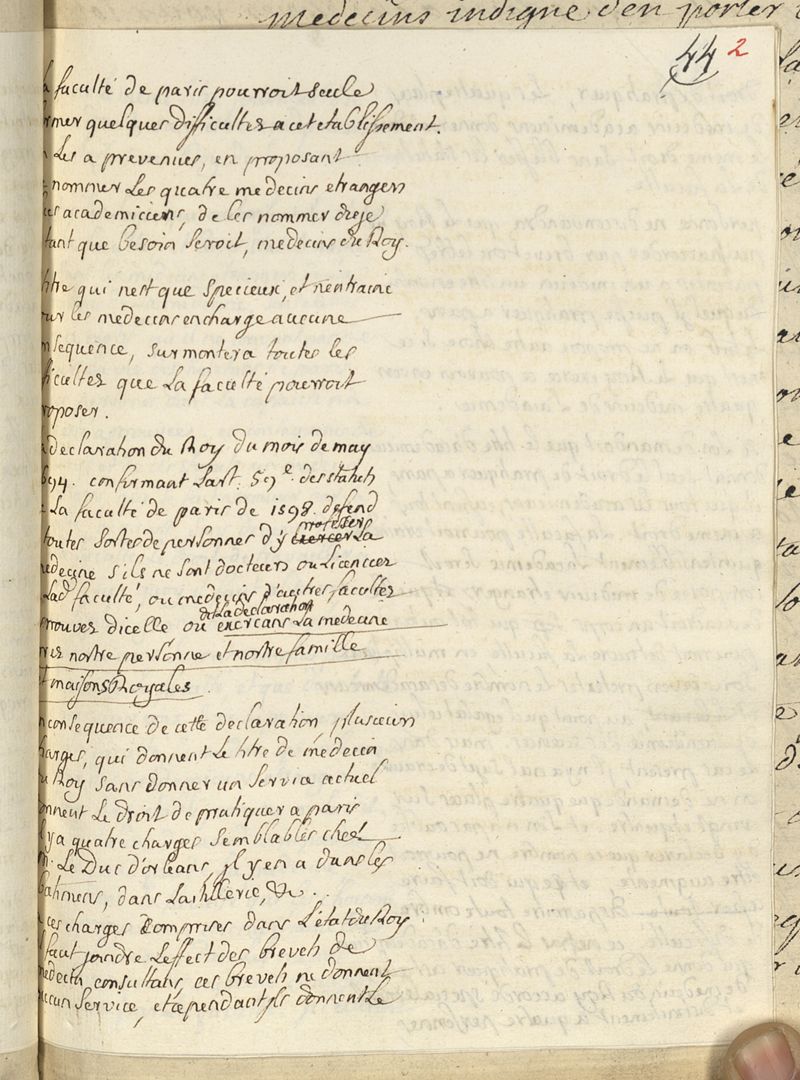 medecins indigne d'en porter
44 2
faculté de paris pourroit seule
rmer quelques difficultez a cet etablissement.
les a prevenues, en proposant
nommer Les quatre medecins etrangers
academiciens, de les nommer
tant que besoin seroit, medecins du Roy.
titre qui n'est que specieux, et n'entraine
our les medecins en charge aucune
nsequence, surmontera toutes les
ficultez que La faculté pourroit
roposer.
declaration du Roy du mois de may
694. confirmant L'art. 59e. des statuts
La faculté de paris de 1598. defend
toutes sortes de personnes d'y professer La
edecine s'ils ne sont docteurs ou Licenciez
Lad faculté, ou medecins d'autres facultez
prouvez d'icelle ou de La declaration exercans La medecine
rez nostre personne et nostre famille
maisons Royales.
consequence de cette declaration plusieurs
harges, qui donnent Le titre de medecin
u Roy sans donner un service actuel
onnent Le droit de pratiquer a paris
il y a quatre charges semblables chez
M. Le Duc d'orleans, jl y en a dans les
batimens, dans L'artillerie, &c.
ces charges comprises dans L'etat du Roy
faut joindre L'effect des brevets de
medecin consultans, ces brevets ne donnent
ucun service, et cependant jls donnent Le